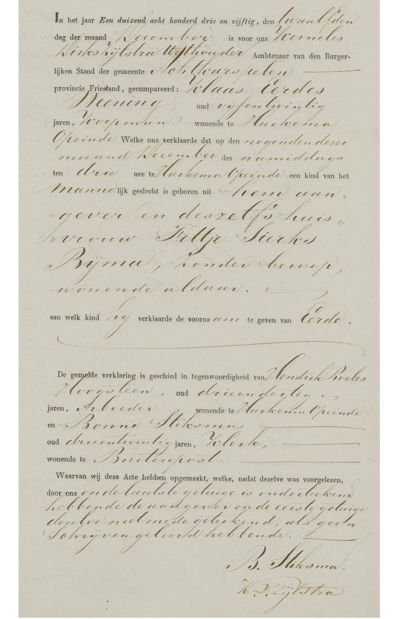 In het jaar Een duizend acht honderd drie en vijftig, den twaalfden
dag der maand December is voor ons Korneles
Dirks Zijlstra Wethouder Ambtenaar van den Burger-
lijken Stand der gemeente Achtkarspelen
provincie Friesland, gecompareerd: Klaas Eerdes
Beening oud vijfentwintig
jaren, Koopman wonende te Harkema
Opeinde Welke ons verklaarde dat op den negenden dezer
maand December des namiddags
ten drie ure te Harkema Opeinde een kind van het
mannelijk geslacht is geboren uit hem aan-
gever en deszelfs huis-
vrouw Feltje Sierks
Bijma, zonder beroep,
wonende aldaar.
aan welk kind hij verklaarde de voornaam te geven van Eerde.
De gemelde verklaring is geschied in tegenwoordigheid van Hendrik Roels
Hoogsteen, oud drieendertig
jaren, Arbeider wonende te Harkema Opeinde
en Bonne Stiksma
oud drieentwintig jaren, Klerk,
wonende te Buitenpost.
Waarvan wij deze Acte hebben opgemaakt, welke, nadat dezelve was voorgelezen,
door ons en de laatste getuige is onderteekend
hebbende de aangever en de eerste getuige
dezelve niet mede geteekend, als geen
Schrijven geleerd hebbende.
B. Stiksma.
K D Zijlstra